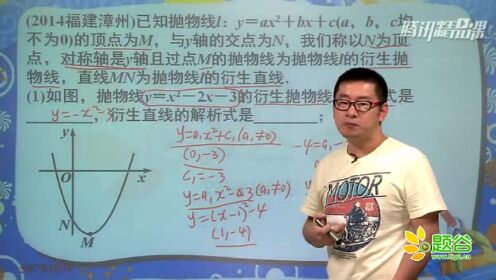 腾讯精品课
(2014福建漳州)已知抛物线l:y=ax²+bx+c(a,b,c均
不为0)的顶点为M,与y轴的交点为N,我们称以N为顶
点,对称轴是y轴且过点M的抛物线为抛物线l的衍生抛
物线,直线MN为抛物线l的衍生直线.
(1)如图,抛物线y=x²-2x-3的衍生抛物线
式是
y=-x²-3
衍生直线的解析式是
;
y
x
N
M
y=a₁x²+c₁(a₁≠0)
(0,-3)
c₁=-3
y=a₁x²-3(a₁≠0)
y=(x-1)²-4
(1,-4)
-4=a₁
MOTOR
题谷